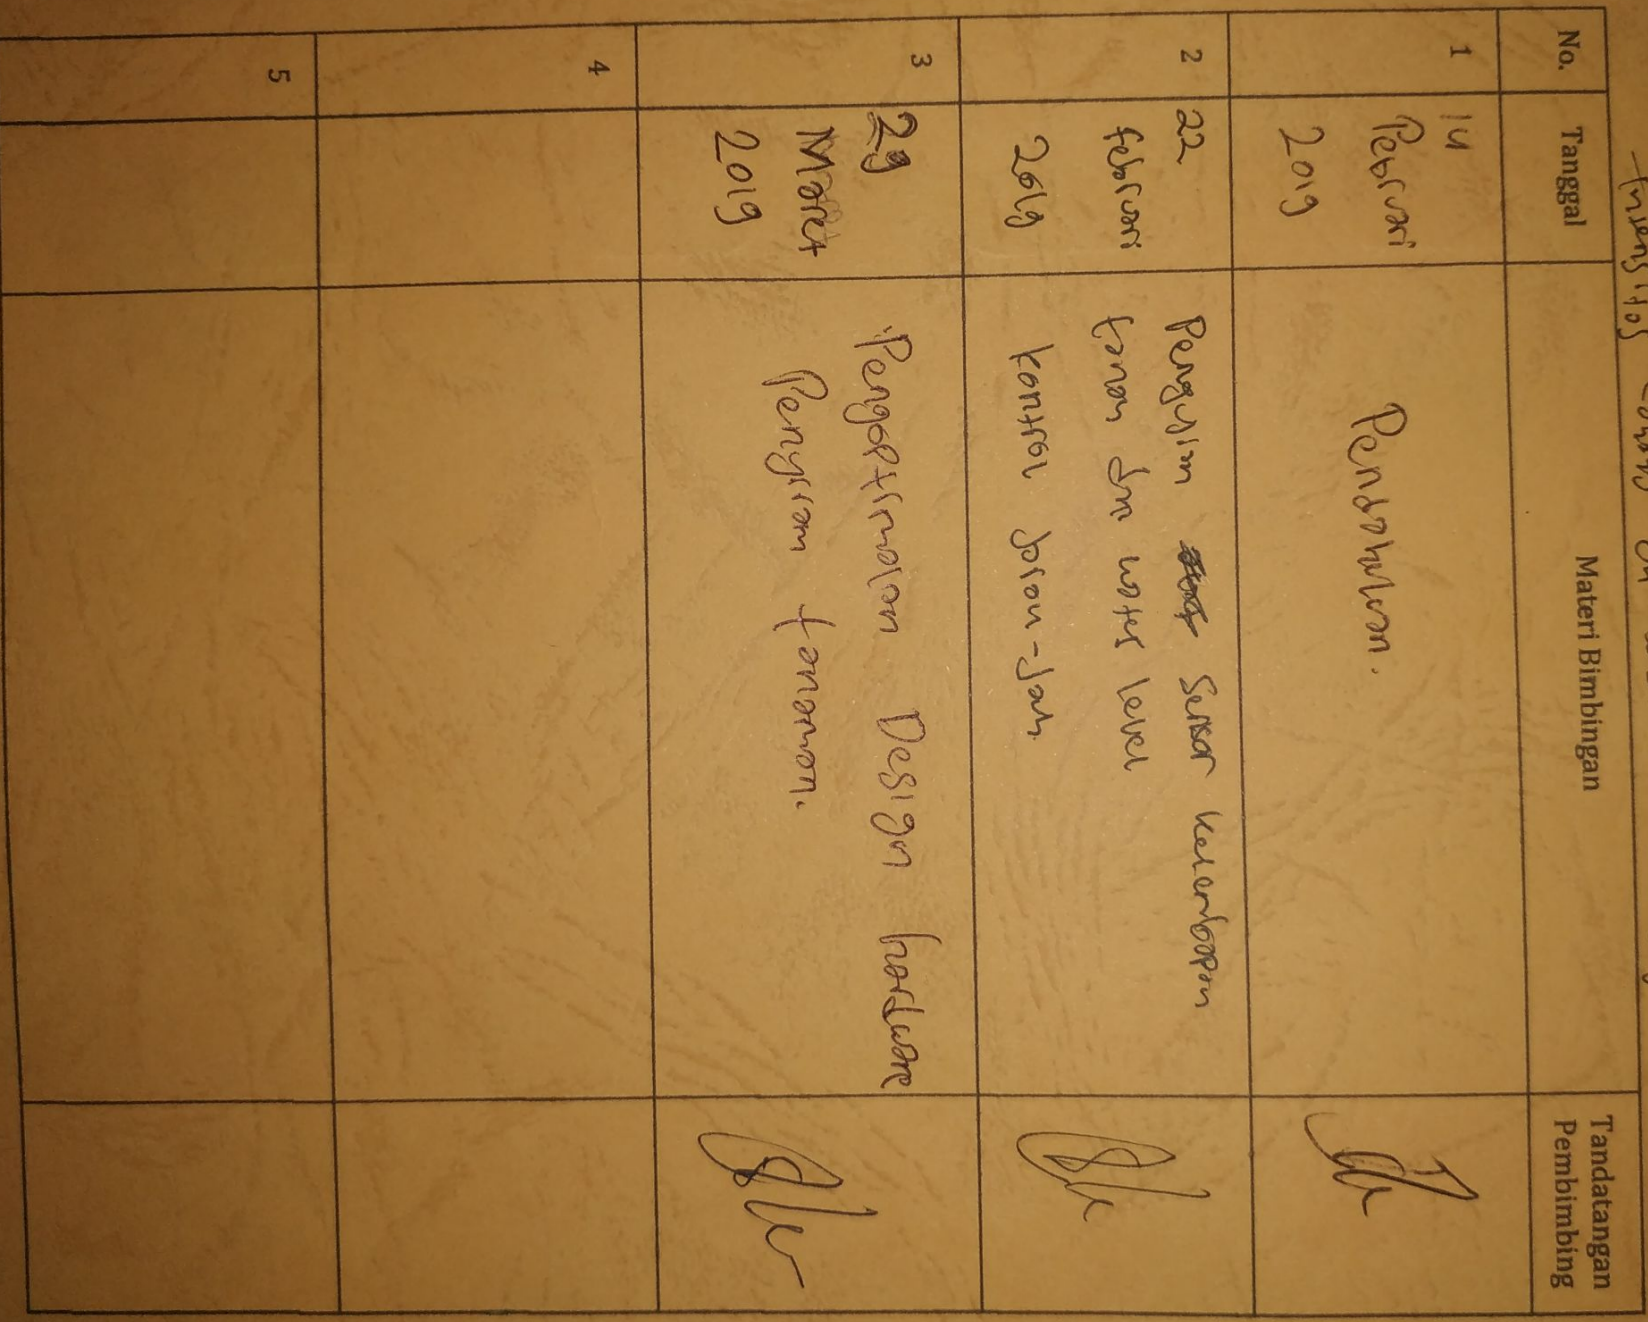 intensitas cahaya
No. Tanggal Materi Bimbingan Tandatangan Pembimbing
1
14
Pebruari
2019
Pendahuluan.
2
22
februari
2019
Pengujian Sensor kelembapan
tanah dan water level
kontrol
3
29
Maret
2019
Pengoptimalan Design hardware
Penyiram tanaman.
4
5